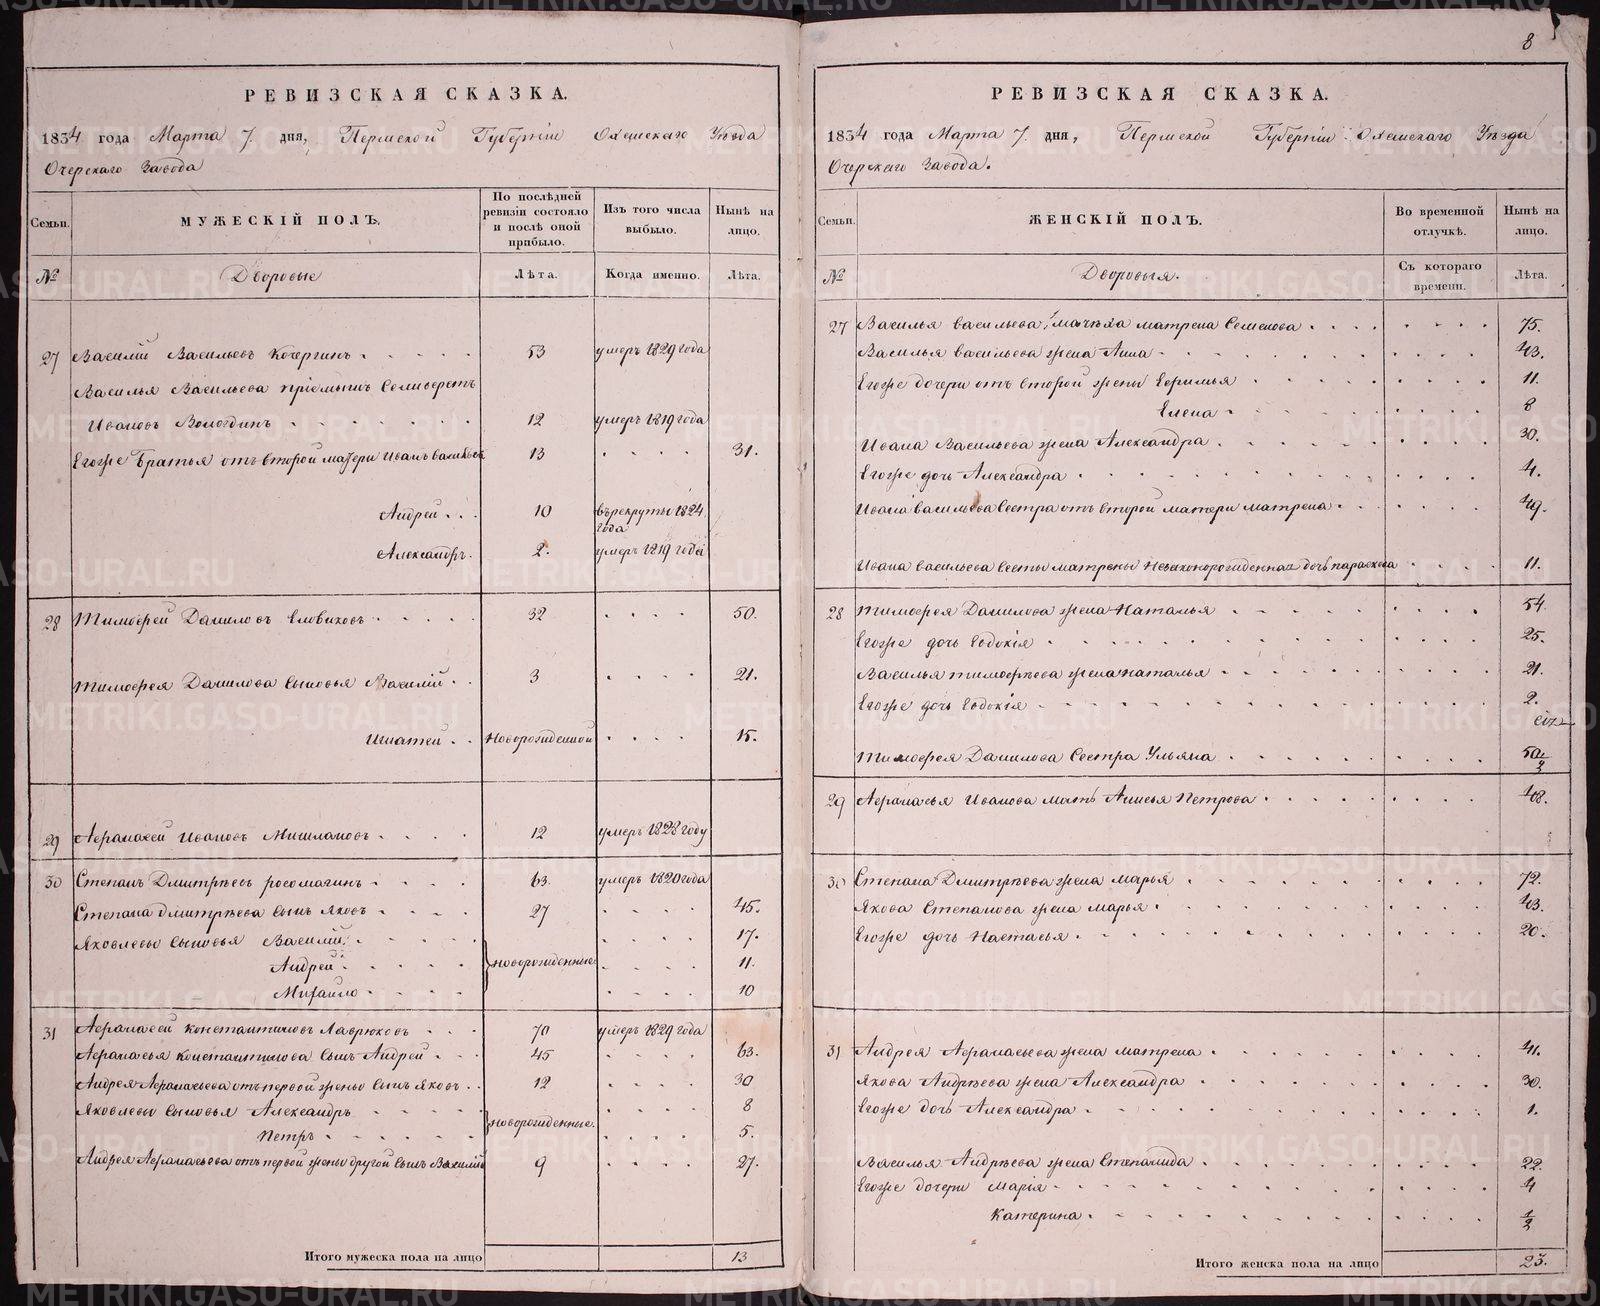 8
РЕВИЗСКАЯ СКАЗКА.
1834 года Марта 7. дня, Пермской Губернiи Оханскаго Уѣзда
Очерскаго Завода
Семьи.
МУЖЕСКIЙ ПОЛЪ.
По послѣдней ревизiи состояло и послѣ оной прибыло.
Изъ того числа выбыло.
Нынѣ на лицо.
№ Дворовые Лѣта. Когда именно. Лѣта.
27 Василiй Васильевъ Кочергинъ 53 умеръ 1829 года
Василья Васильева прiемышъ Селиверстъ
Ивановъ Вологдинъ 12 умеръ 1819 года
Егоже Братья отъ второй матери Иванъ васильевъ 13 31.
Андрей 10 въ рекруты 1824 года
Александръ. 2. умеръ 1819 года
28 Тимофей Даниловъ Еловиковъ 32 50.
Тимофея Данилова Сыновья Василiй 3 21.
Игнатей Новорожденной 15.
29 Афанасей Ивановъ Мишлановъ 12 умеръ 1828 году
30 Степанъ Дмитрѣевъ росомагинъ 63. умеръ 1820 года
Степана дмитрѣева Сынъ Яковъ 27 45.
Яковлевы Сыновья Василiй 17.
Андрей новорожденные 11.
Михайло 10
31 Афанасей Константиновъ Лаврюковъ 70 умеръ 1829 года
Афанасья Константинова Сынъ Андрей 45 63.
Андрея Афанасьева отъ первой жены Сынъ Яковъ 12 30
Яковлевы Сыновья Александръ 8
новорожденные.
Петръ 5.
Андрея Афанасьева отъ первой жены другой Сынъ Василiй 9 27.
Итого мужеска пола на лицо 13
РЕВИЗСКАЯ СКАЗКА.
1834 года Марта 7. дня, Пермской Губернiи Оханскаго Уѣзда
Очерскаго Завода.
Семьи.
ЖЕНСКIЙ ПОЛЪ.
Во временной отлучкѣ.
Нынѣ на лицо.
№ Дворовыя. Съ котораго времени. Лѣта.
27 Василья васильева мачиха матрена Семенова 75.
Василья васильева жена Анна 43.
Егоже дочери отъ второй жены Ефимья 11.
Елена 8
Ивана Васильева жена Александра 30.
Егоже дочь Александра 4.
Ивана васильева Сестра отъ второй матери матрена 49.
Ивана васильева Сестры матрены Незаконорожденная дочь параскова 11.
28 Тимофея Данилова жена Наталья 54.
Егоже дочь Евдокiя 25.
Василья тимофѣева жена наталья 21.
Егоже дочь Евдокiя 2.
Тимофея Данилова Сестра Ульяна
29 Афанасья Иванова мать Анисья Петрова 48.
30 Степана Дмитрѣева жена марья 72.
Якова Степанова жена марья 43.
Егоже дочь Настасья 20.
31 Андрея Афанасьева жена матрена 41.
Якова Андрѣева жена Александра 30.
Егоже дочь Александра 1.
Василья Андрѣева жена Степанида 22.
Егоже дочери Марiя 4
Катерина 1/2
Итого женска пола на лицо 23.
METRIKI.GASO-URAL.RU